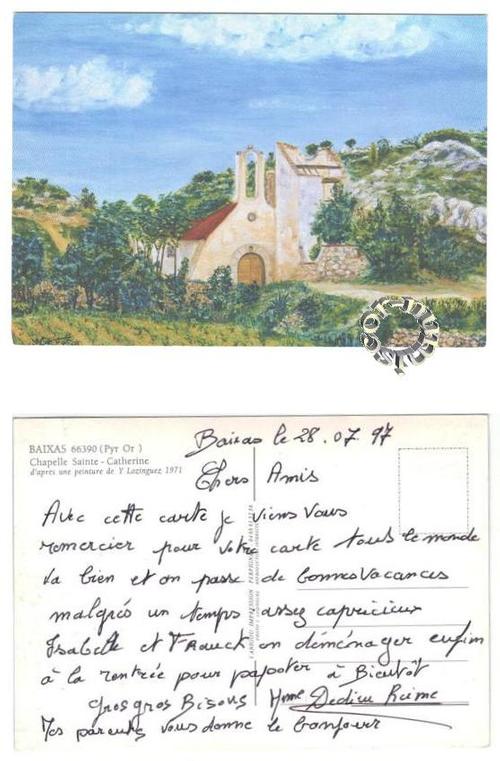 BAIXAS 66390 (Pyr Or )
Chapelle Sainte - Catherine
d'après une peinture de Y Lozinguez 1971
Baixas le 28.07.97
Chers Amis
Avec cette carte je viens vous
remercier pour votre carte tous le monde
va bien et on passe de bonnes vacances
malgrés un temps assez capricieux
Isabelle et Franck on déménager enfin
à la rentrée pour papoter à Bientôt
gros gros Bisous Mme Dedieu
Mes parents vous donne le bonjour